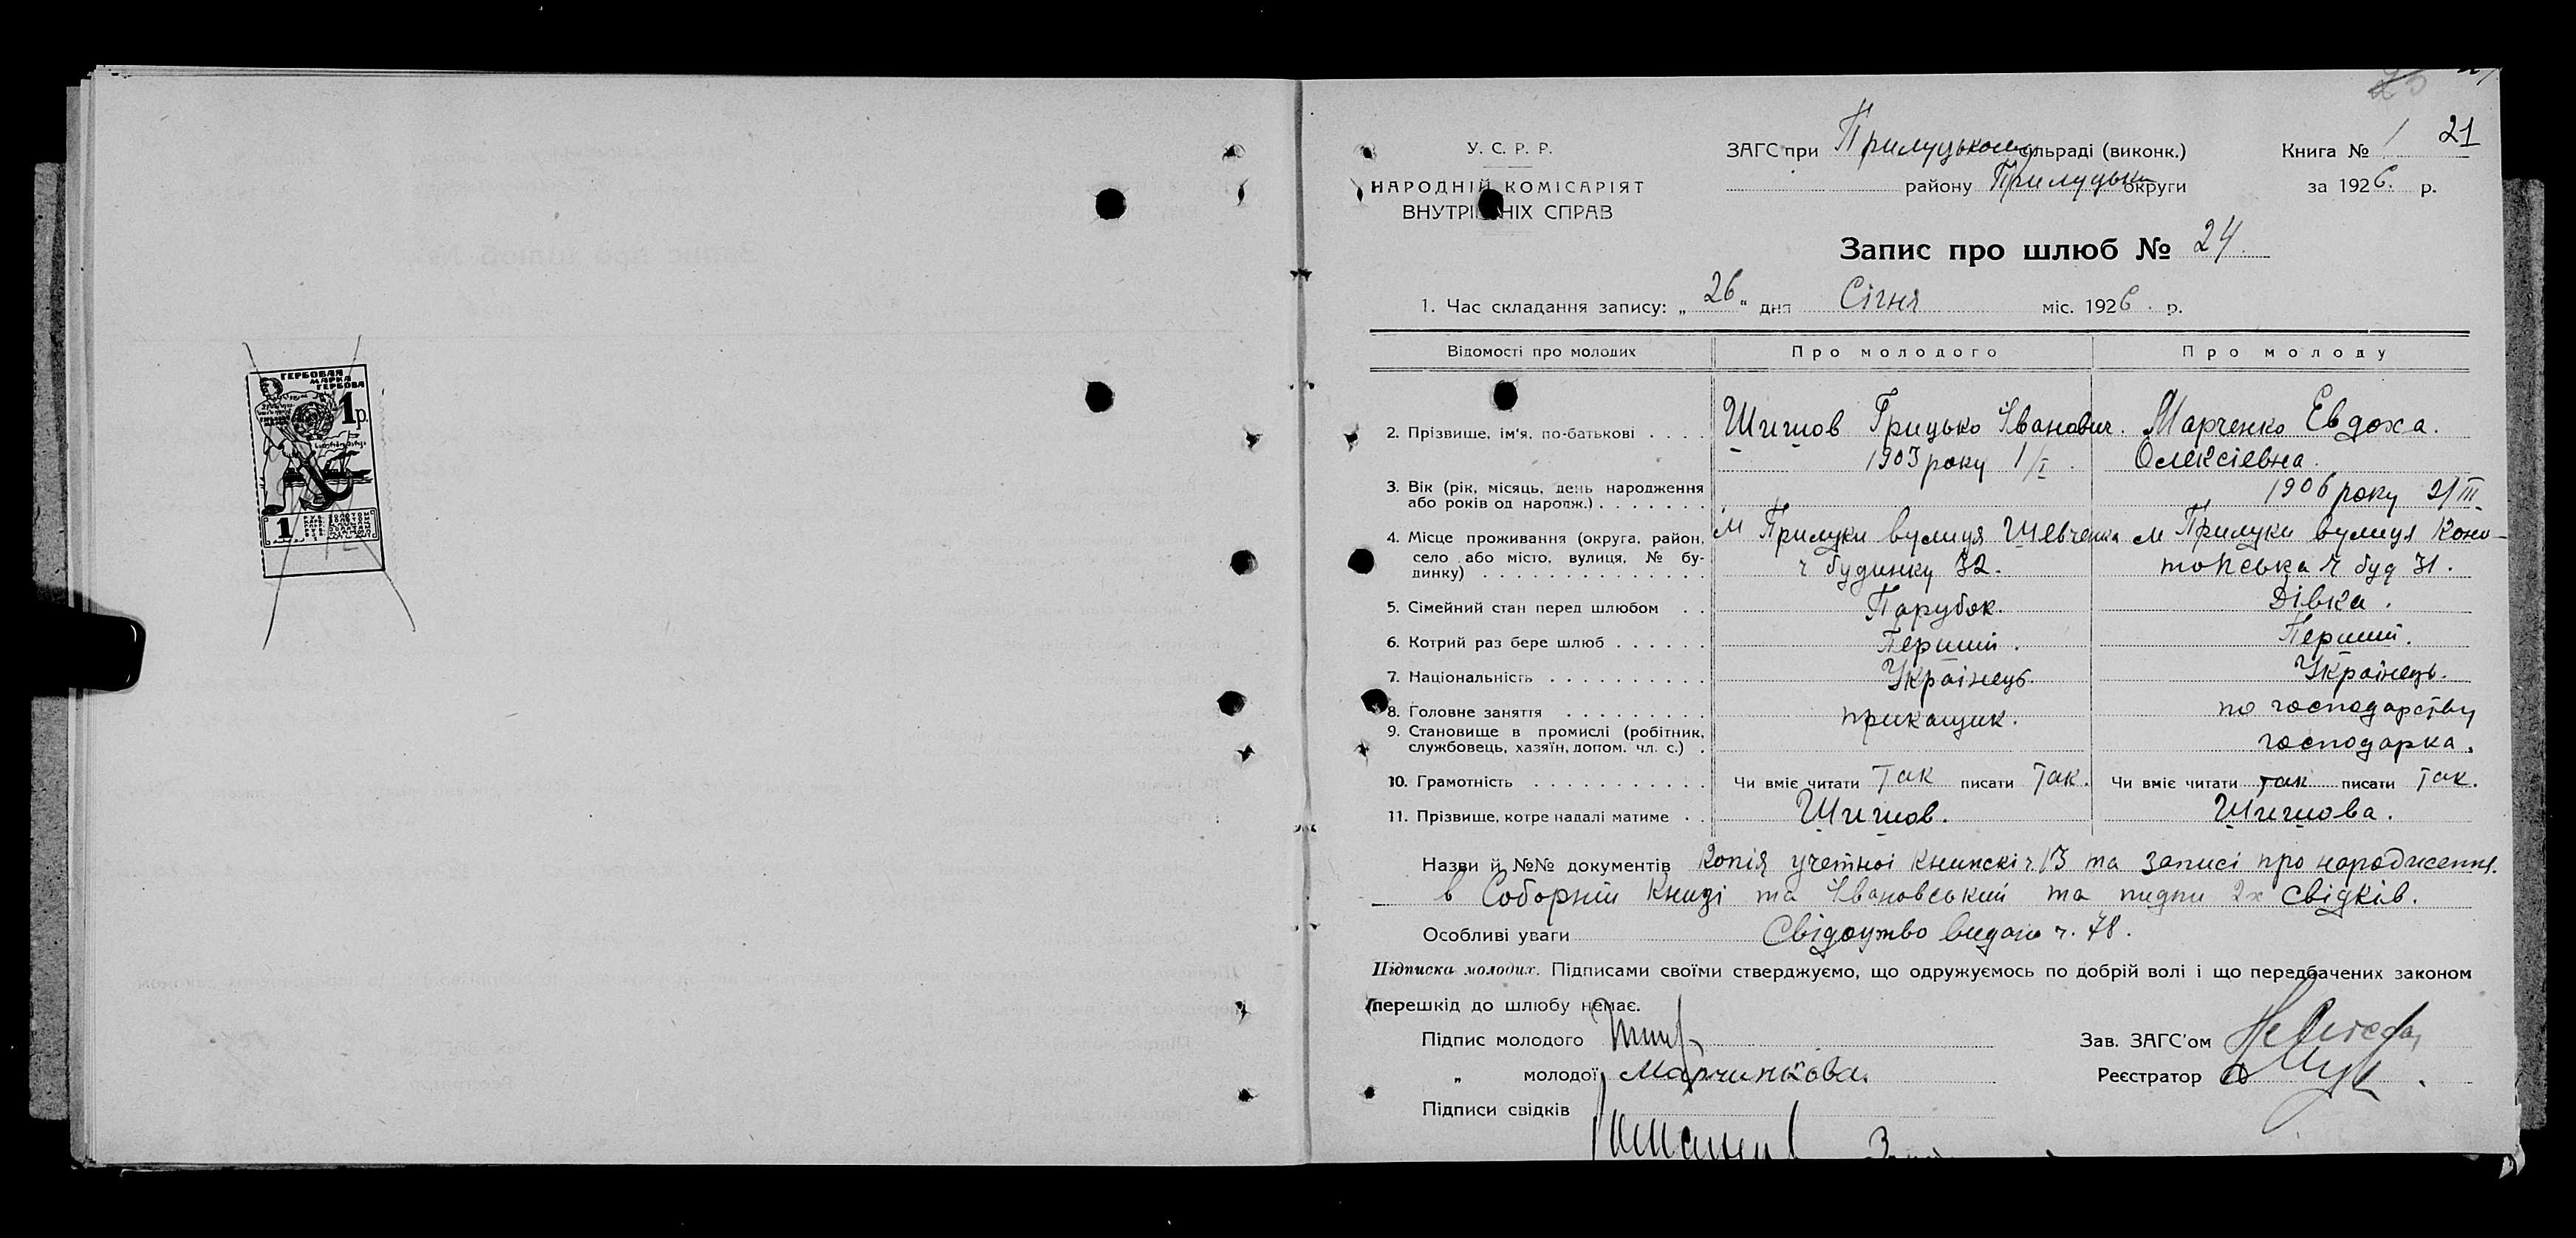 ГЕРБОВАЯ
МАРКА
ГЕРБОВА
1р.
1
21
У. С. Р. Р.
НАРОДНІЙ КОМІСАРІЯТ
ВНУТРІШНІХ СПРАВ
ЗАГС при Прилуцькому сільраді (виконк.)
району Прилуцьки округи
Книга № 1
за 1926. р.
Запис про шлюб № 24.
1. Час складання запису: „26“ дня Січня міс. 1926. р.
Відомості про молодих Про молодого Про молоду
2. Прізвище, ім'я, по-батькові . . . . Шишов Грицько Іванович. Марченко Евдоха.
Олексіевна.
3. Вік (рік, місяць, день народження або років од народж.) . . . . . . . 1903 року 1/I. 1906 року 21/III
4. Місце проживання (округа, район, село або місто, вулиця, № будинку) . . . . . . . . . . . . . .
м Прилуки вулиця Шевченка
ч будинку 32.
м Прилуки вулиця Коно-
топська ч буд 31.
5. Сімейний стан перед шлюбом . . Парубок. Дівка.
6. Котрий раз бере шлюб . . . . . . Перший. Перший.
7. Національність . . . . . . . . . . Українець. Українець.
8. Головне заняття . . . . . . . . . прикащик. по господарству
9. Становище в промислі (робітник, службовець, хазяїн, допом. чл. с.) . господарка.
10. Грамотність . . . . . . . . . . . Чи вміє читати так писати так. Чи вміє читати так писати так.
11. Прізвище, котре надалі матиме . . Шишов. Шишова.
Назви й №№ документів Копія учетноі книжкі ч. 13 та записі про народження.
в Соборній книзі та Івановський та пидпи 2х свідків.
Особливі уваги Свідоцтво видано ч. 78.
Підписка молодих. Підписами своїми стверджуємо, що одружуємось по добрій волі і що передбачених законом
перешкід до шлюбу немає.
Підпис молодого
Зав. ЗАГС'ом
„ молодої Марчинкова.
Реєстратор
Підписи свідків